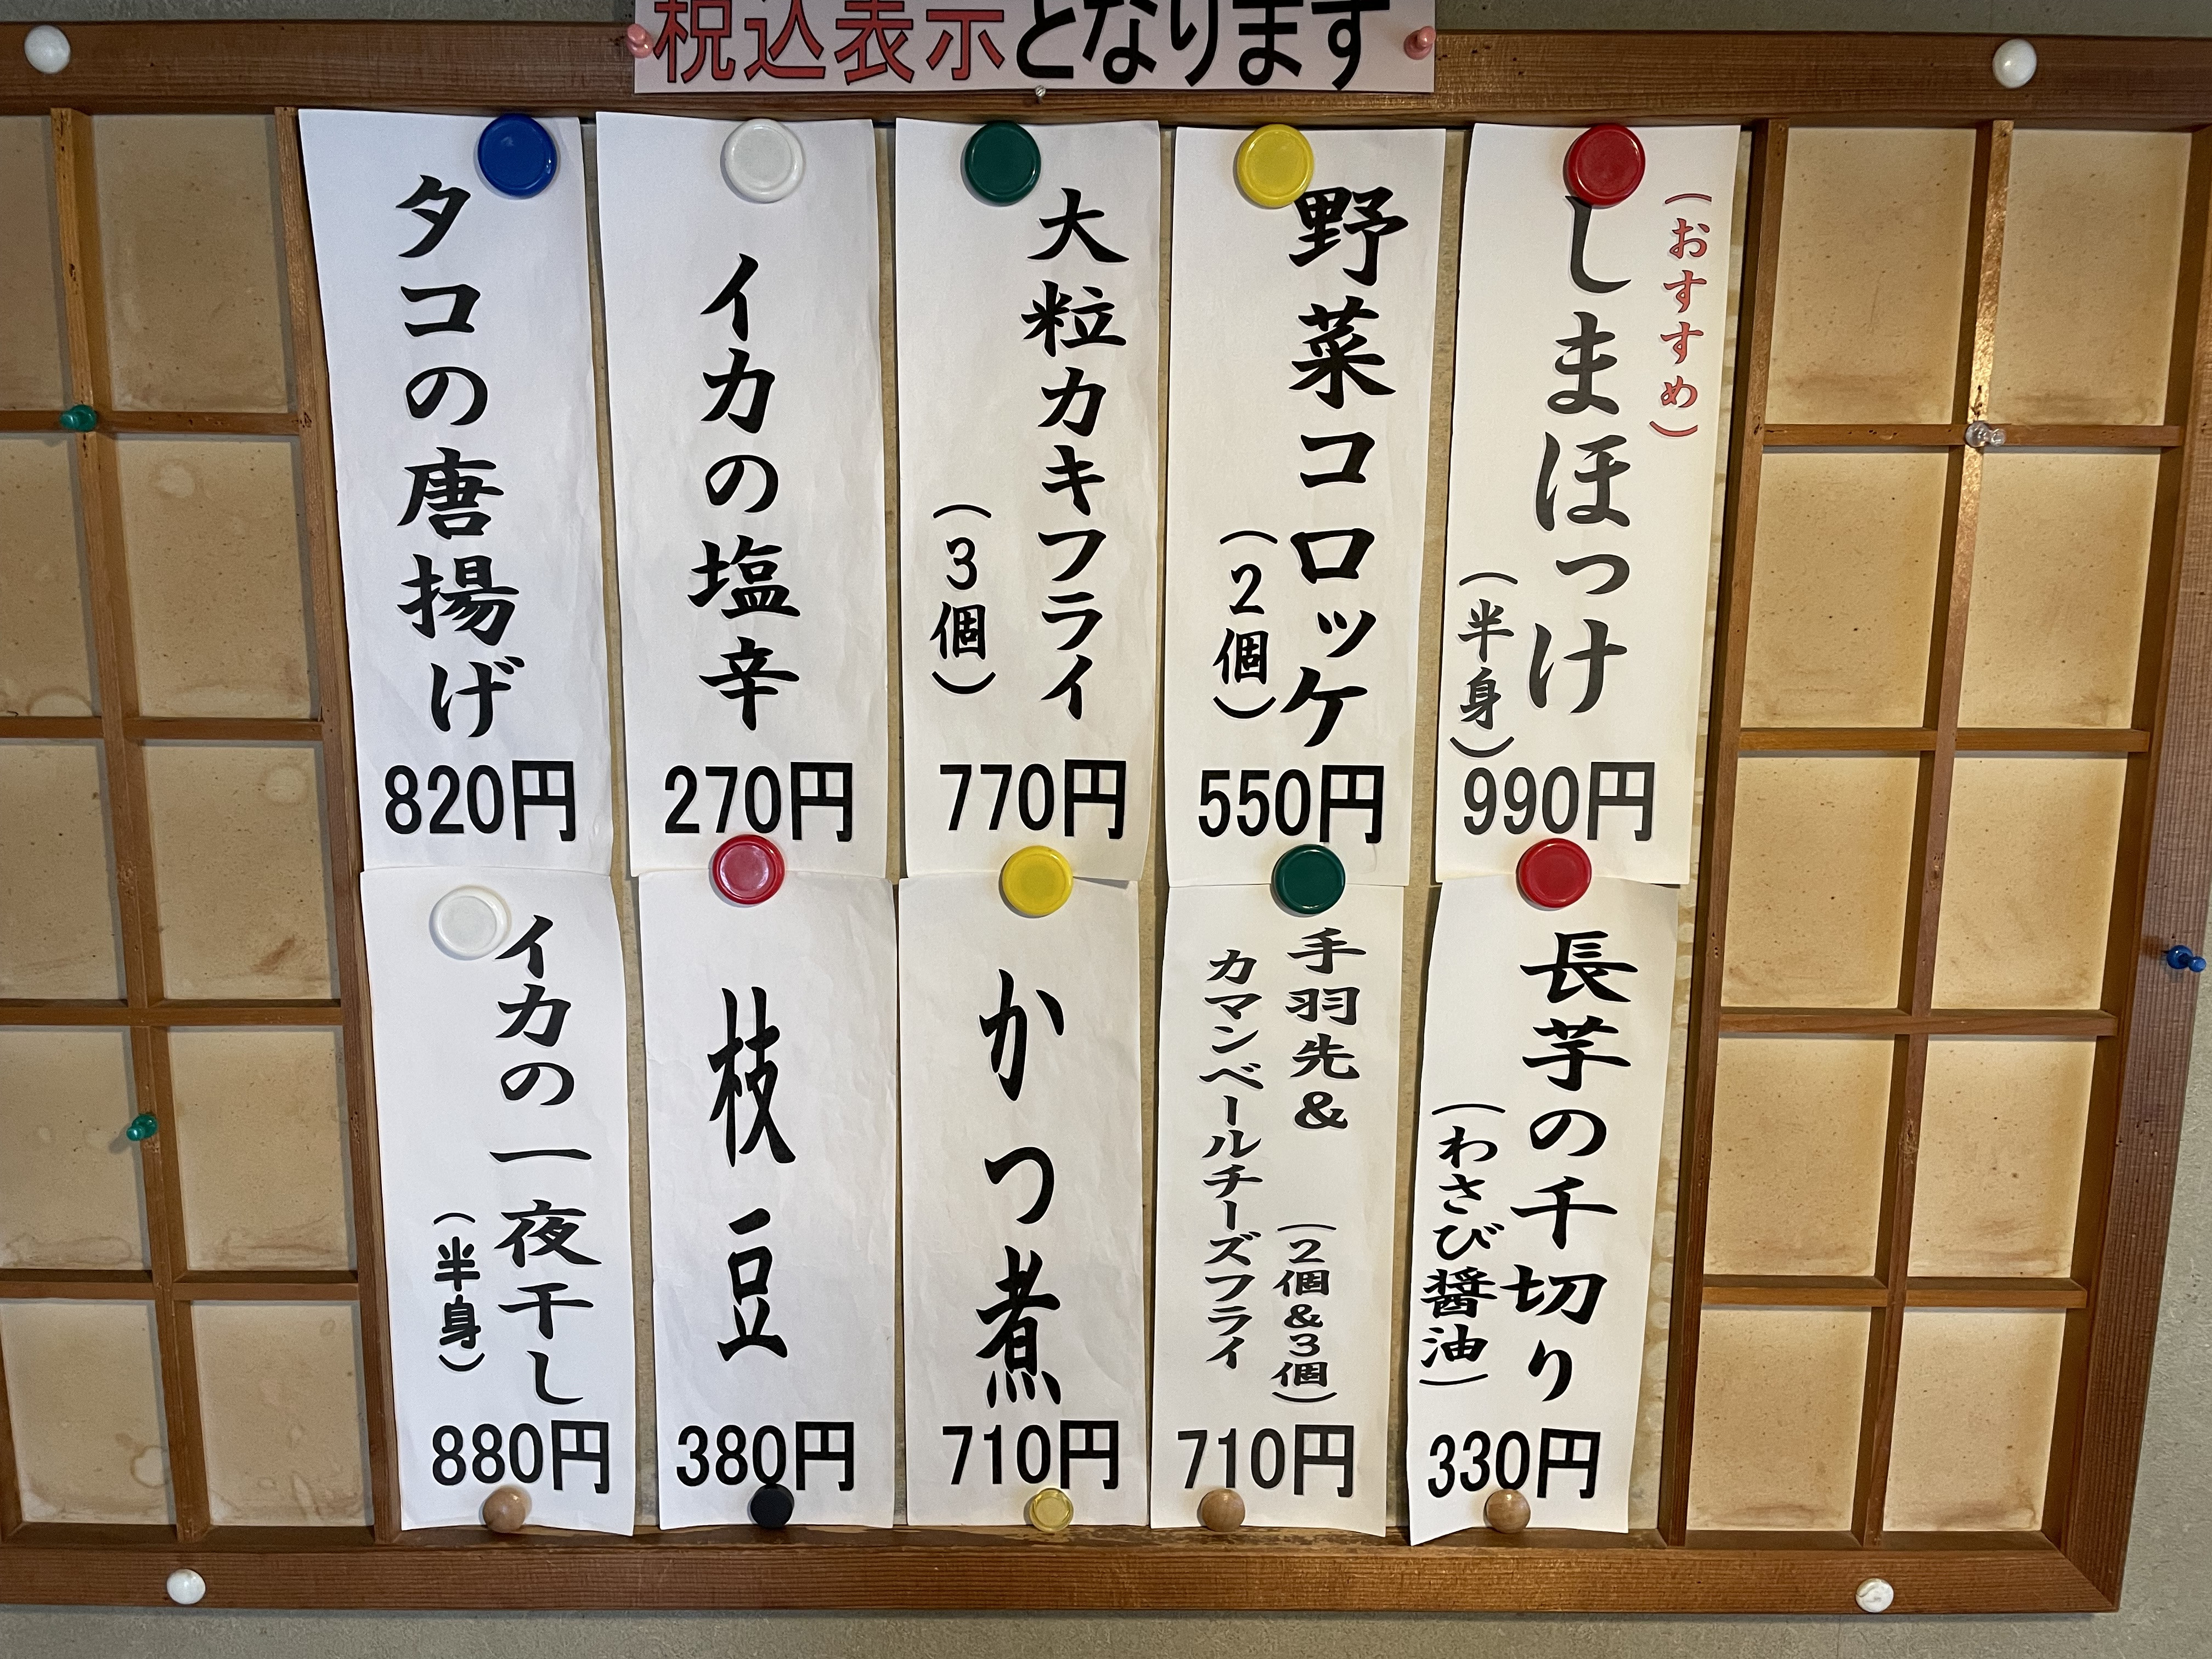 税込表示となります
（おすすめ）
しまほっけ
（半身）
990円
野菜コロッケ
（2個）
550円
大粒カキフライ
（3個）
770円
イカの塩辛
270円
タコの唐揚げ
820円
長芋の千切り
（わさび醤油）
330円
手羽先&
（2個&3個）
カマンベールチーズフライ
710円
かつ煮
710円
枝豆
380円
イカの一夜干し
（半身）
880円